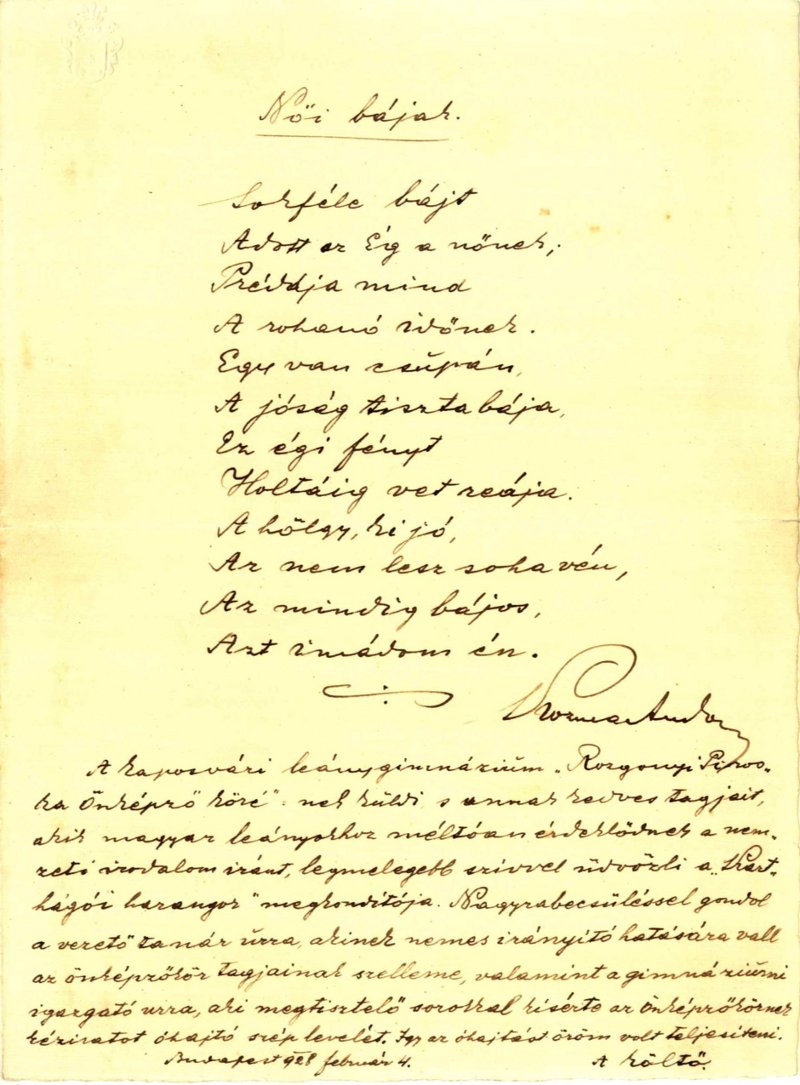 Női bájak.
Sokféle bájt
Adott az Ég a nőnek;
Prédája mind
A rohanó időnek.
Egy van csupán,
A jóság tiszta bája,
Ez égi fényt
Holtáig vet reája.
A hölgy, ki jó,
Az nem lesz soha vén,
Az mindig bájos,
Azt imádom én.
Kozma Andor
A kaposvári leánygimnázium „Rozgonyi Piros-
ka Önképző Köré"-nek küldi s annak kedves tagjait,
akik magyar leányokhoz méltóan érdeklődnek a nem-
zeti irodalom iránt, legmelegebb szivvel üdvözli a „Kart-
hágói harangok" megkonditója. Nagyrabecsüléssel gondol
a vezető tanár úrra, akinek nemes irányító hatására vall
az önképzőkör tagjainak szelleme, valamint a gimnáziumi
igazgató urra, aki megtisztelő sorokkal kisérte az Önképzőkörnek
kéziratot óhajtó szép levelét. Igy az óhajtást öröm volt teljesiteni.
Budapest 928 február 4.
A költő.